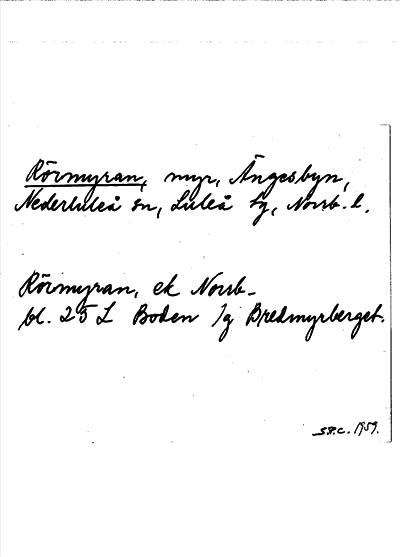 Rörmyran, myr, Ängesbyn,
Nederluleå sn, Luleå tg, Norrb. l.
Rörmyran, ek Norrb-
bl. 25 L Boden 1g Bredmyrberget.
1959.